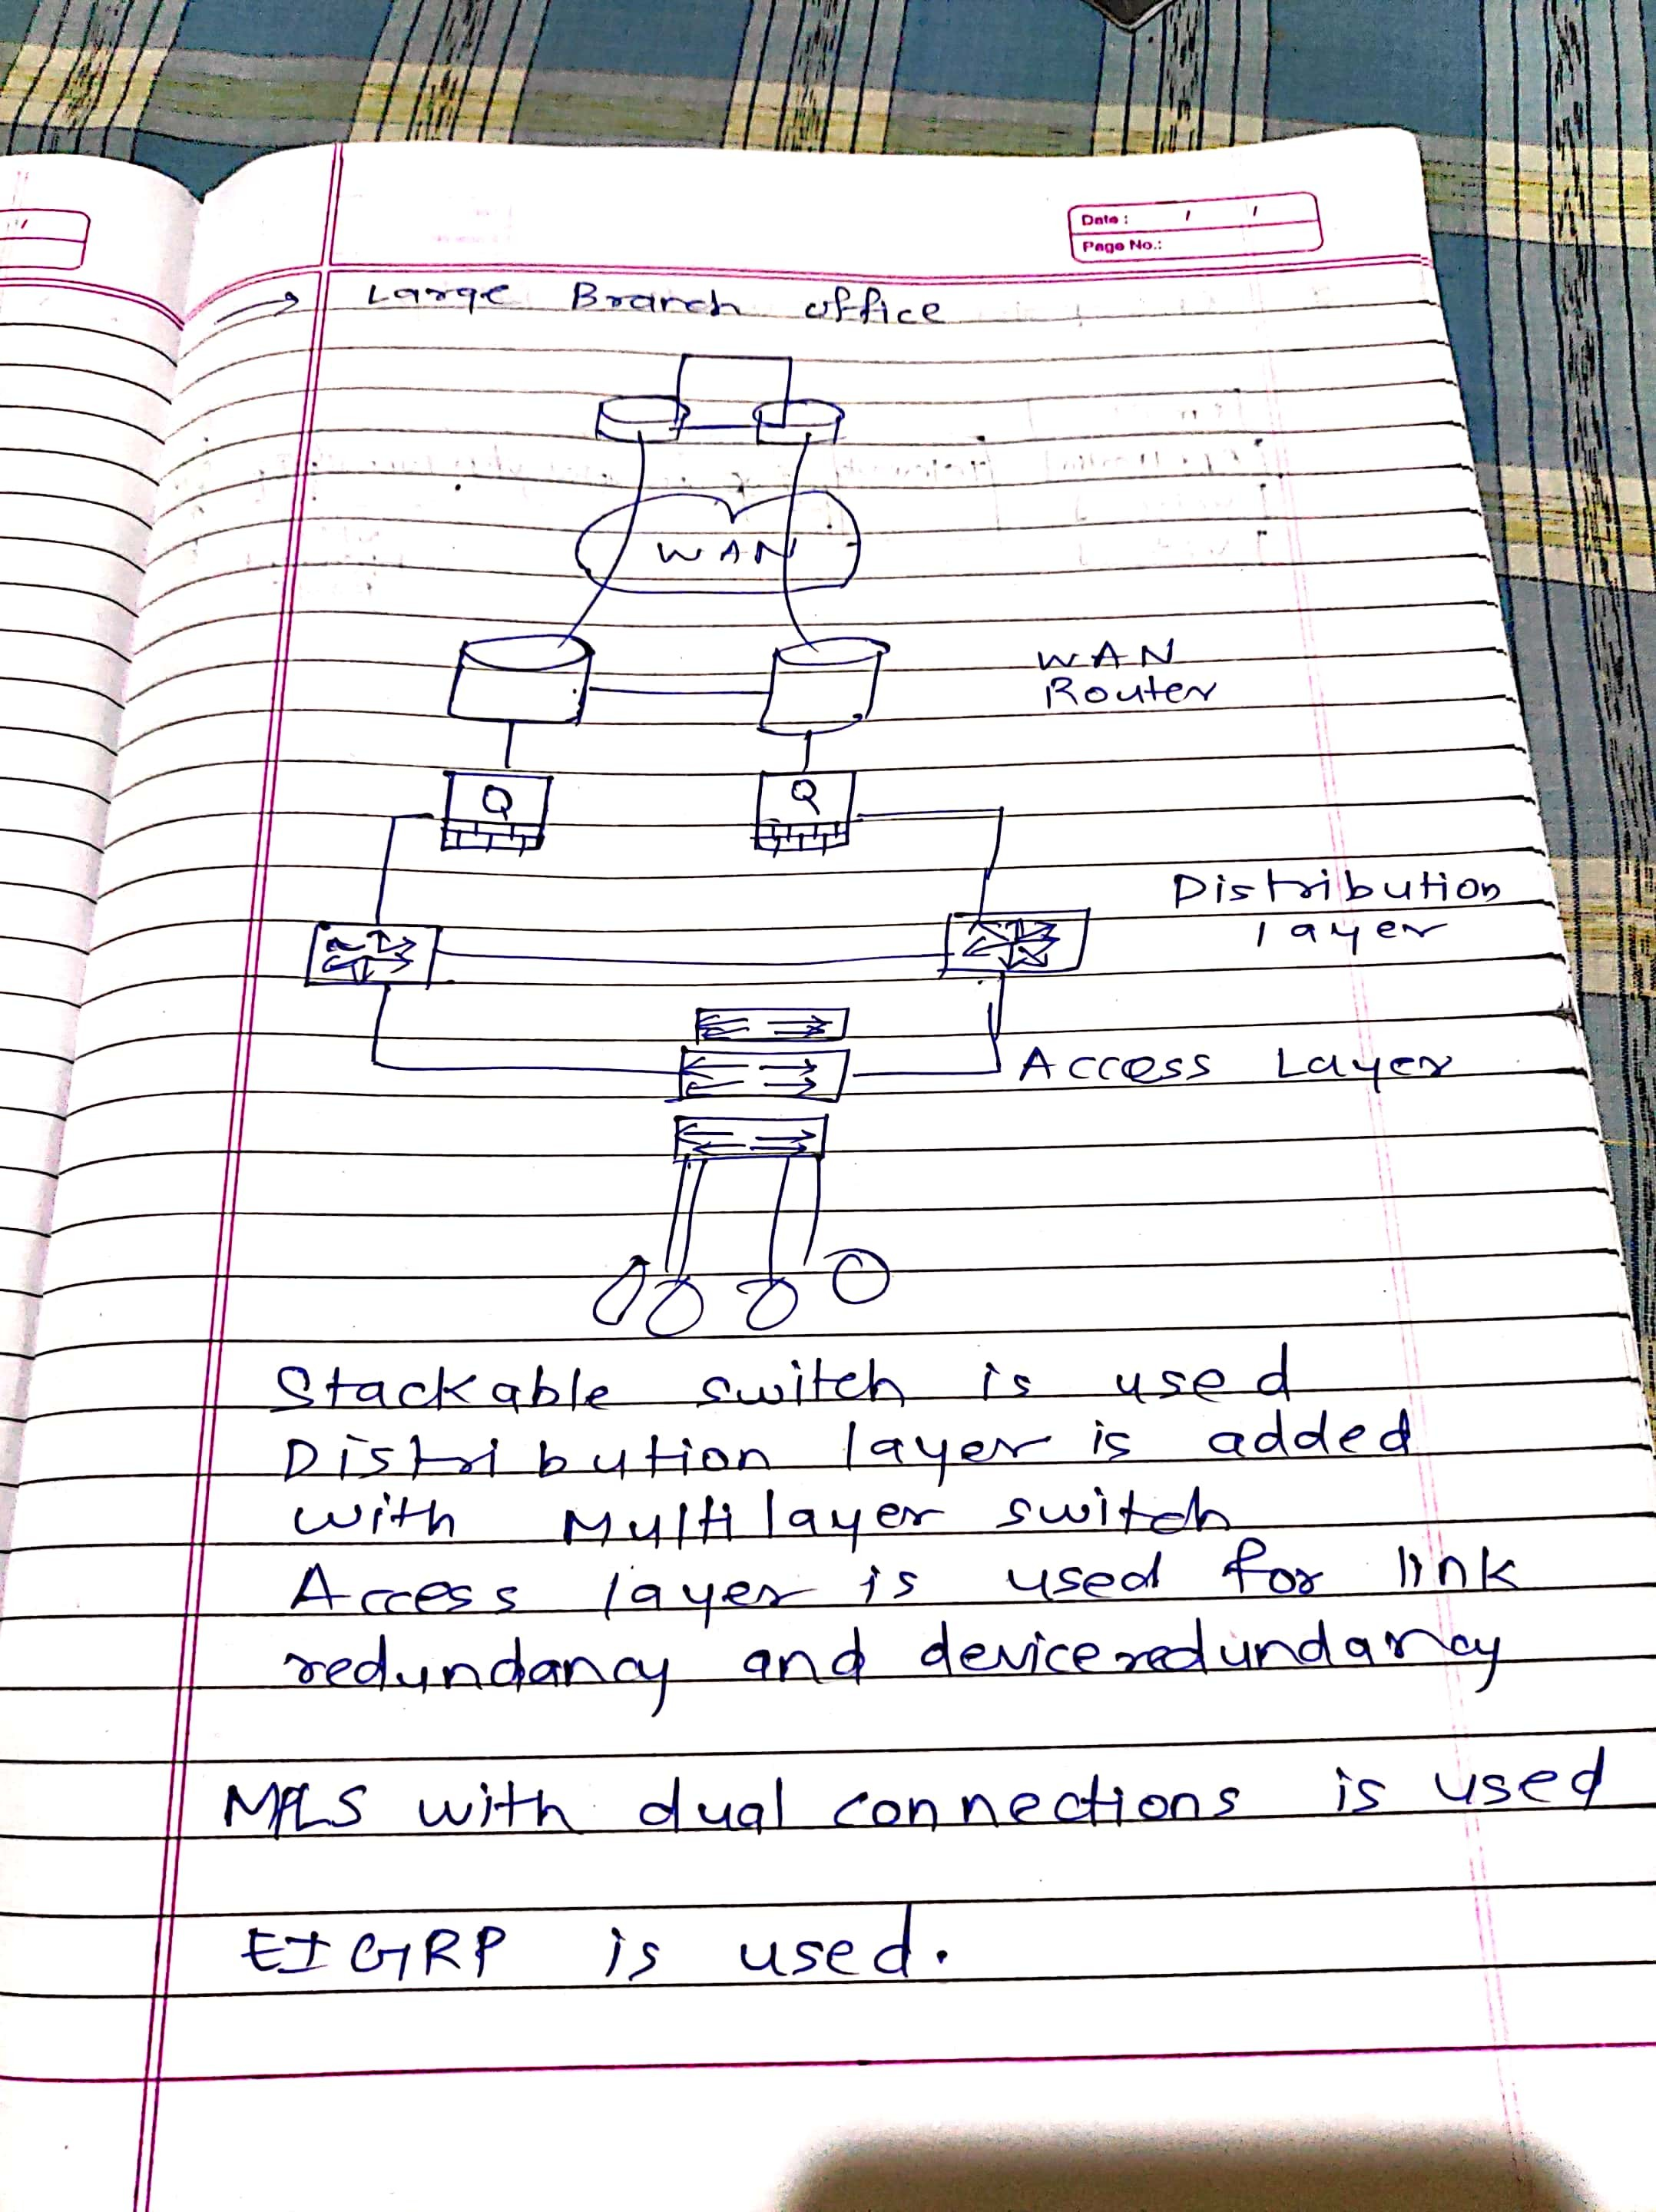 Date :
Page No.:
→ Large Branch office
WAN
WAN
Router
Q Q
Distribution
layer
Access Layer
Stackable switch is used
Distribution layer is added
with Multilayer switch
Access layer is used for link
redundancy and device redundancy
MPLS with dual connections is used
EIGRP is used.